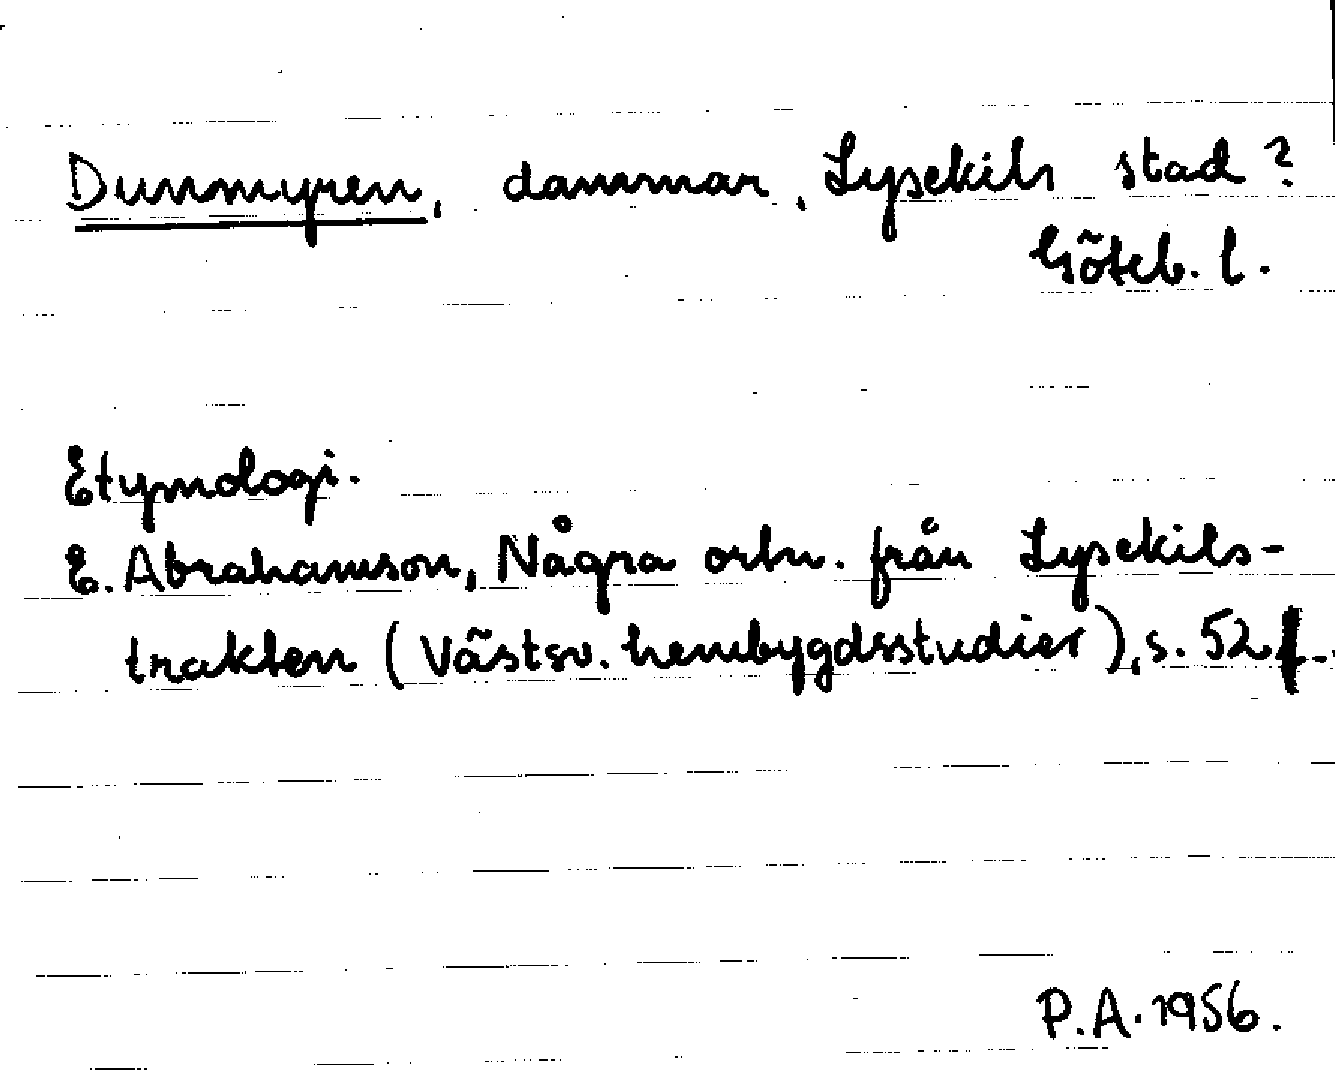 Dunmyren, dammar, Lysekils stad?
Göteb. l.
Etymologi.
E. Abrahamson, Några ortn. från Lysekils-
trakten (Västsv. hembygdsstudier), s. 52 f.
P.A. 1956.